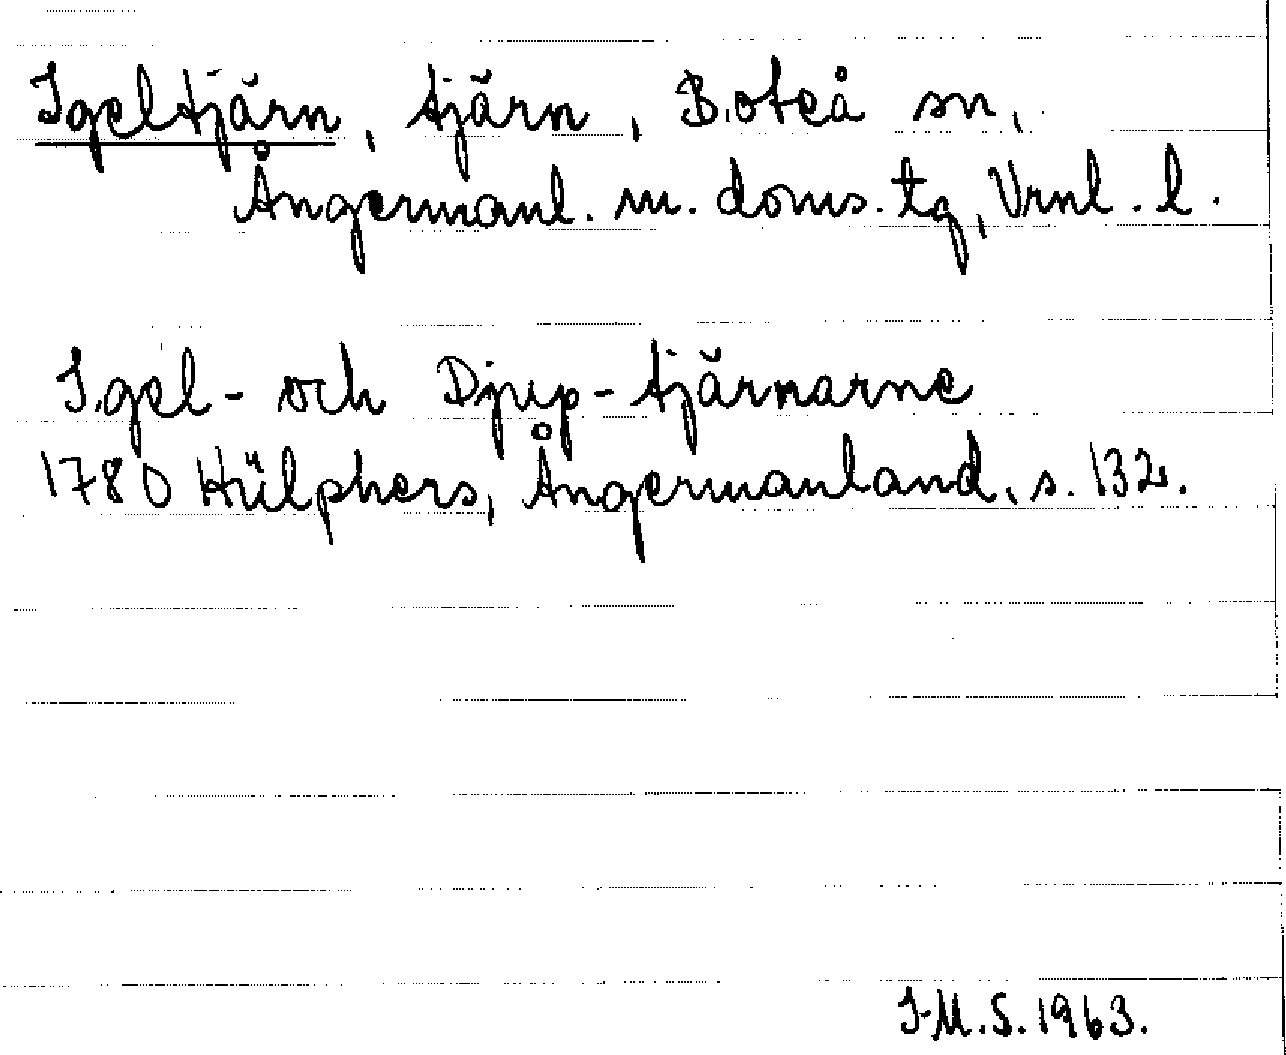 Igeltjärn, tjärn, Boteå sn,
Ångermanl. m. doms. tg, Vrnl. l.
Igel- och Djup-tjärnarne
1780 Hülphers, Ångermanland, s. 132.
I-M.S. 1963.